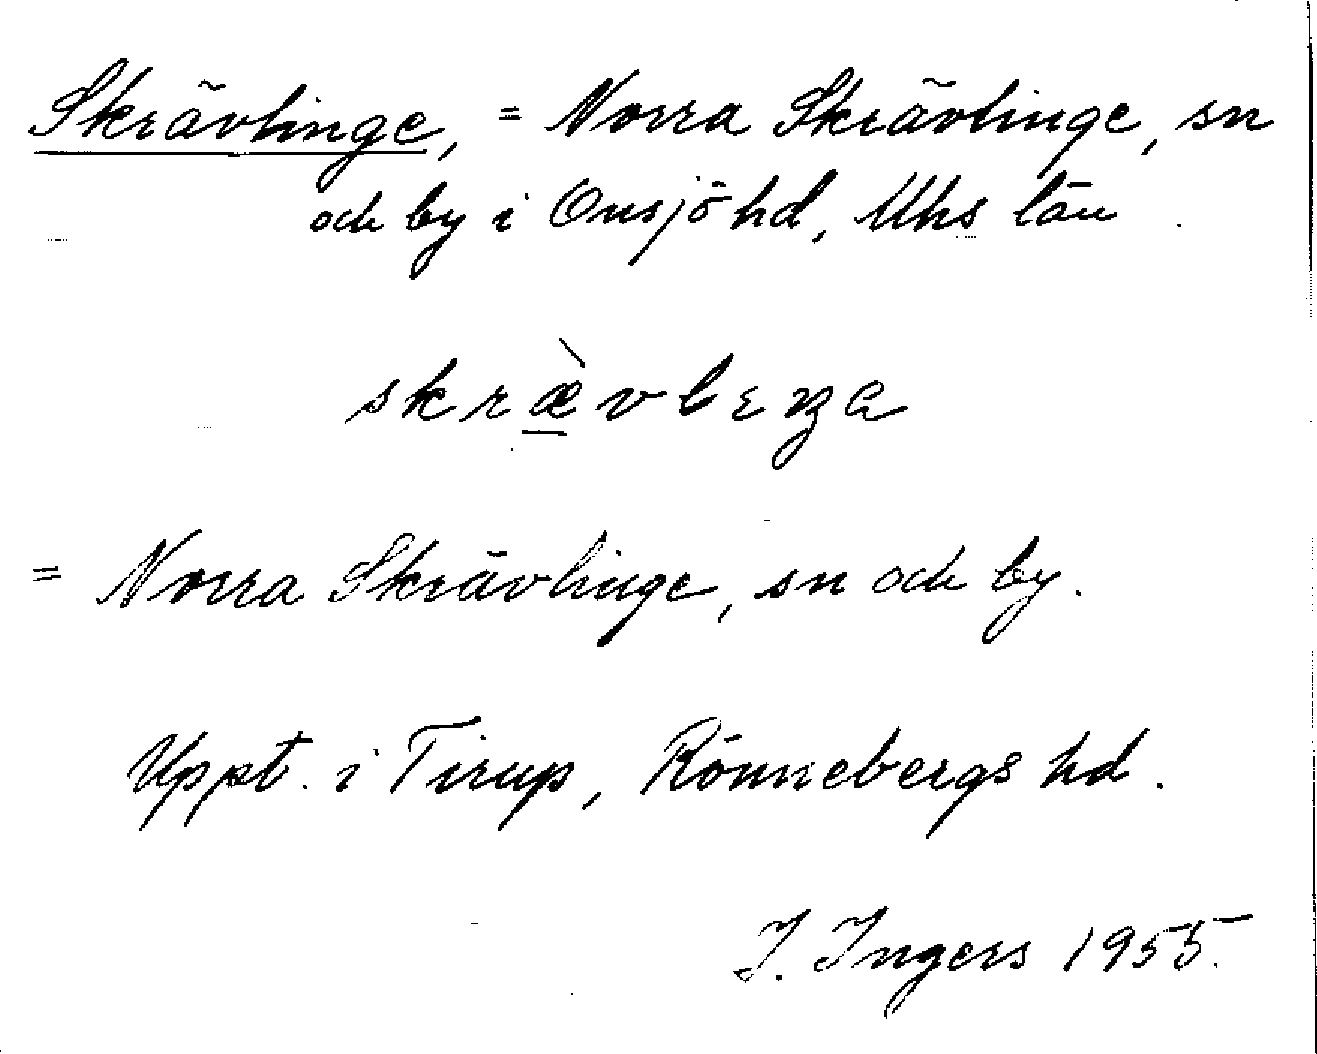 Skrävlinge, = Norra Skrävlinge, sn
och by i Onsjö hd, Mhs län
skræ̀vlɛŋa
= Norra Skrävlinge, sn och by.
Uppt. i Tirup, Rönnebergs hd.
I. Ingers 1955.